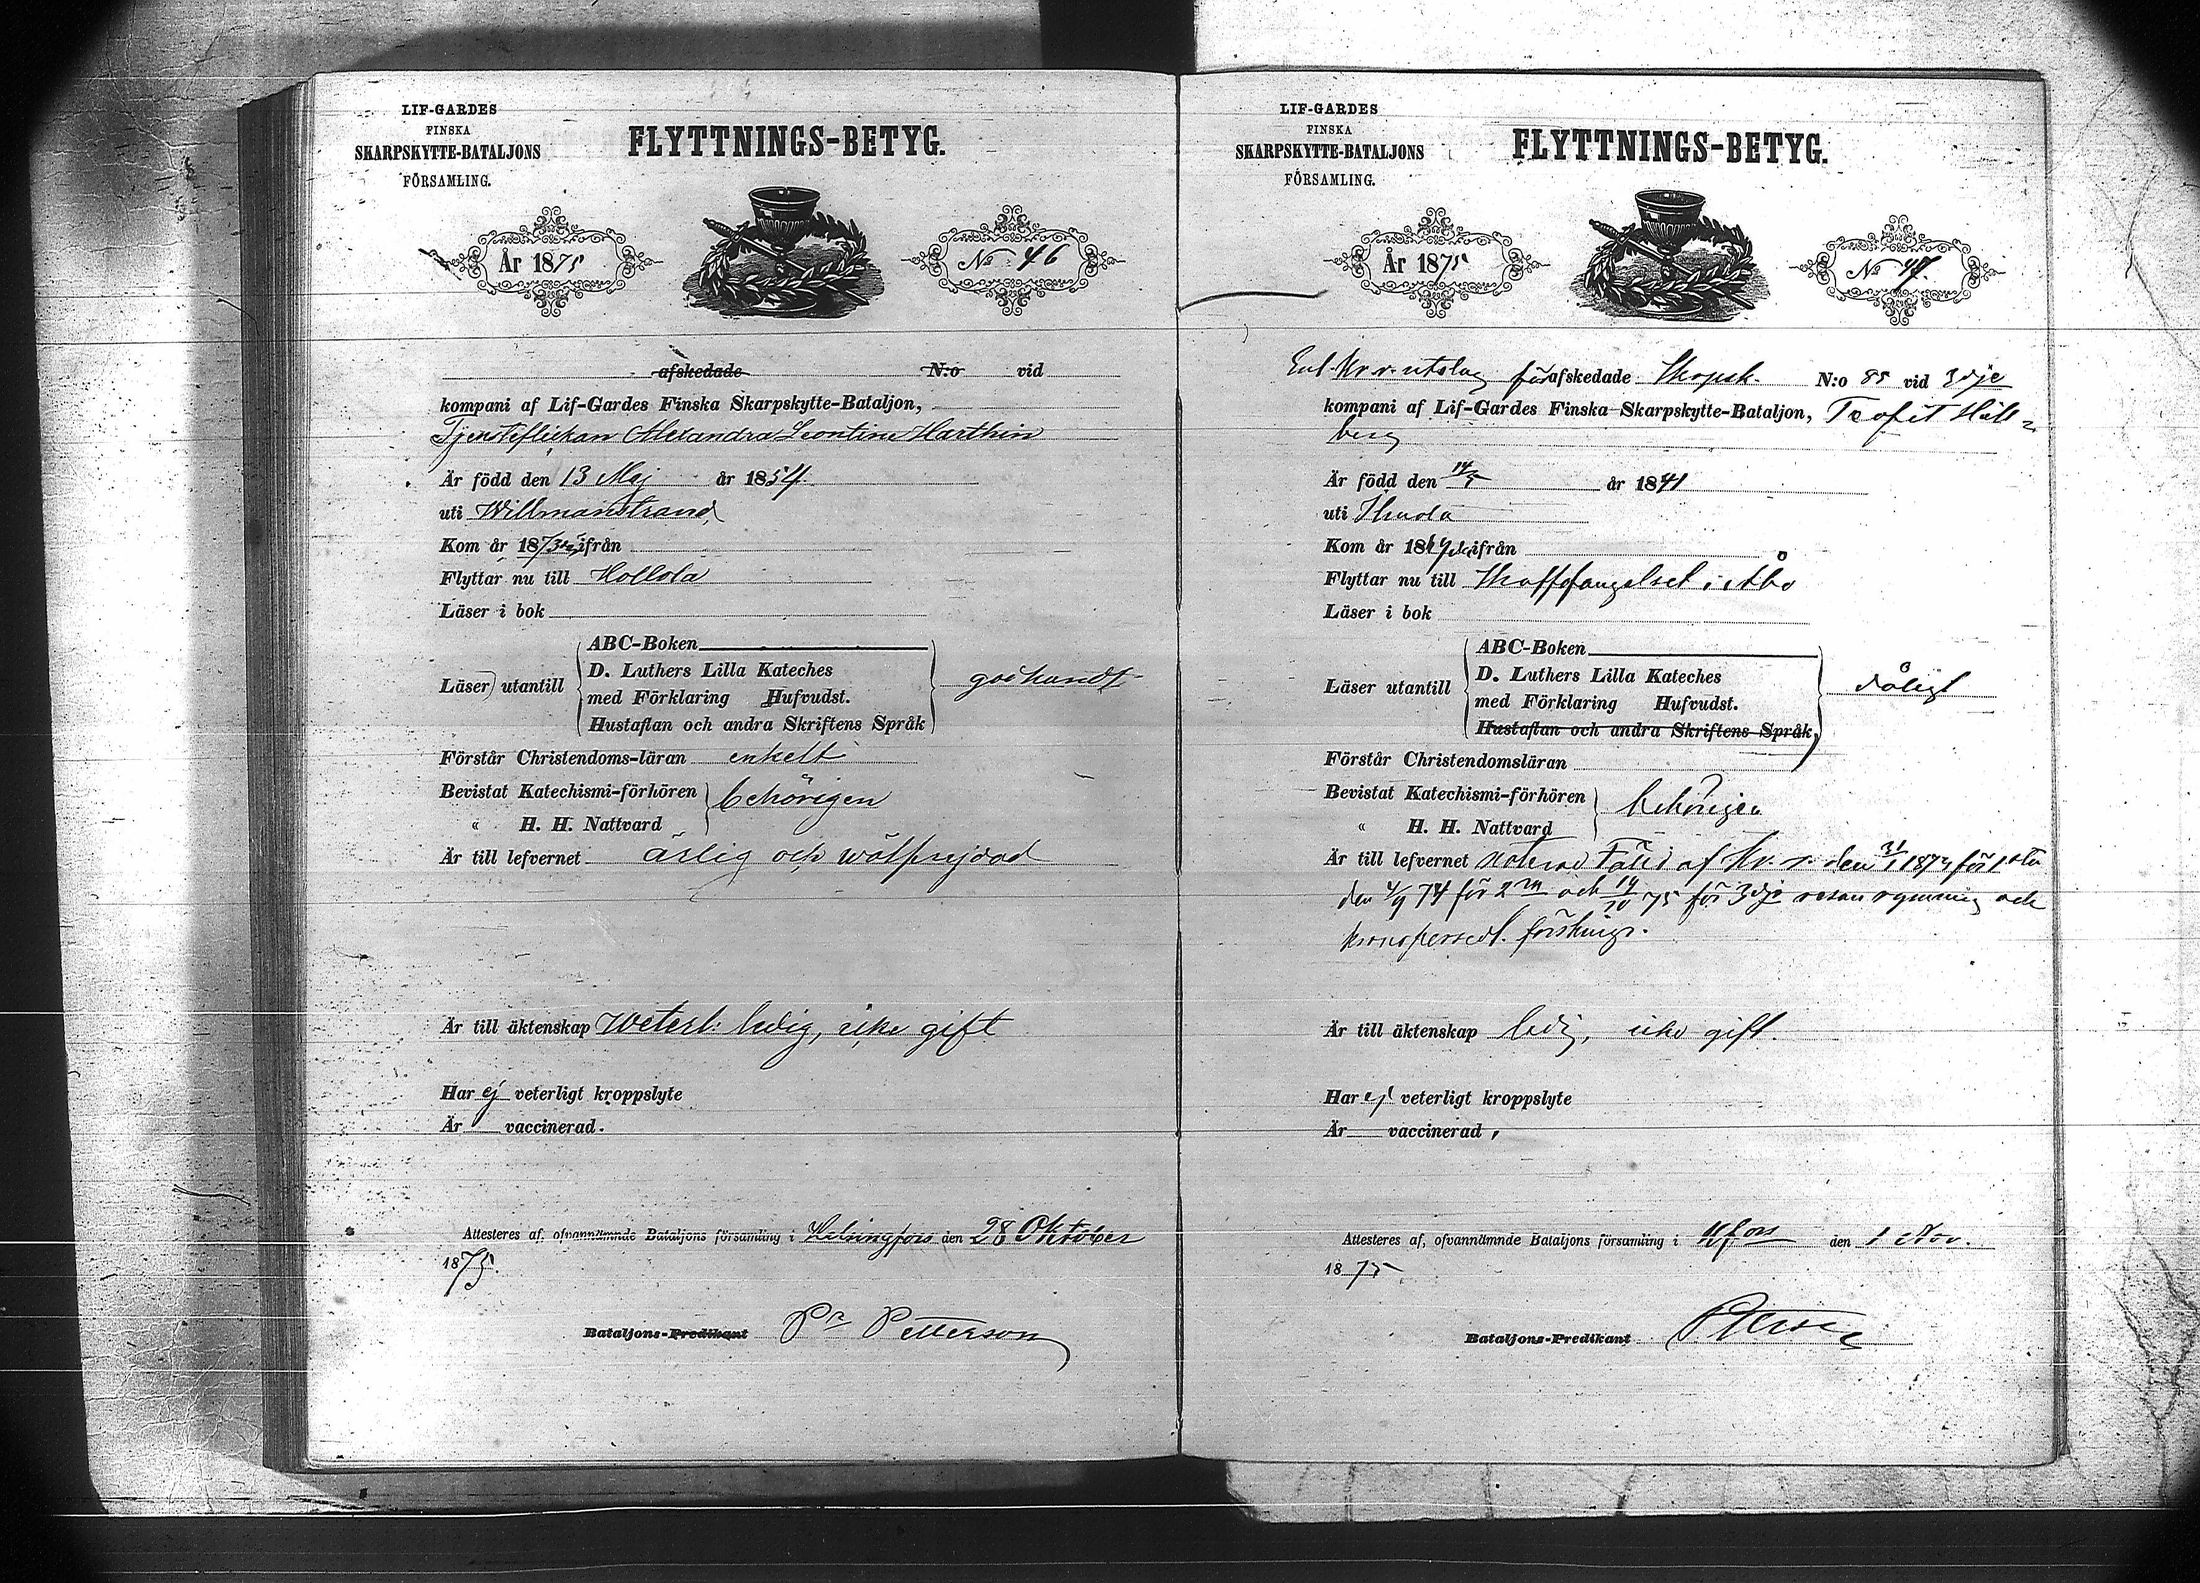 LIF-GARDES
FINSKA
SKARPSKYTTE-BATALJONS
FÖRSAMLING.
FLYTTNINGS-BETYG.
År 1875
No 46
afskedade N:o vid
kompani af Lif-Gardes Finska Skarpskytte-Bataljon,
Tjensteflickan Alexandra Leontina Harthin
Är född den 13 Maj år 1854.
uti Willmanstrand
Kom år 1873 ifrån
Flyttar nu till Hollola
Läser i bok
ABC-Boken
D. Luthers Lilla Kateches
Läser utantill godkändt
med Förklaring Hufvudst.
Hustaflan och andra Skriftens Språk
Förstår Christendoms-läran enkelt
Bevistat Katechismi-förhören behörigen
« H. H. Nattvard
Är till lefvernet ärlig och wälfrejdad
Är till äktenskap weterl: ledig, icke gift
Har ej veterligt kroppslyte
Är vaccinerad.
Attesteres af, ofvannämnde Bataljons församling i Helsingfors den 28 Oktober
1875.
Bataljons-Predikant Petterson
LIF-GARDES
FINSKA
SKARPSKYTTE-BATALJONS
FÖRSAMLING.
FLYTTNINGS-BETYG.
År 1875
No 47.
Enl. Kr. r. utslag förafskedade Skarpsk. N:o 85 vid 3dje
kompani af Lif-Gardes Finska Skarpskytte-Bataljon, Trofit Häll
berg
Är född den 14/5 år 1841
uti
Kom år 18 ifrån
Flyttar nu till Straffängelset i Åbo
Läser i bok
ABC-Boken
D. Luthers Lilla Kateches
Läser utantill dåligt
med Förklaring Hufvudst.
Hustaflan och andra Skriftens Språk
Förstår Christendomsläran
Bevistat Katechismi-förhören behörigen
« H. H. Nattvard
Är till lefvernet af Kr. r. den 31/1 187 för 1sta
den 4/9 74 för 2 och 19/10 75 för 3dje resan rymning och
förskingr.
Är till äktenskap ledig, icke gift.
Har ej veterligt kroppslyte
Är vaccinerad,
Attesteres af, ofvannämnde Bataljons församling i Hfors den 1 Nov.
1875
Bataljons-Predikant